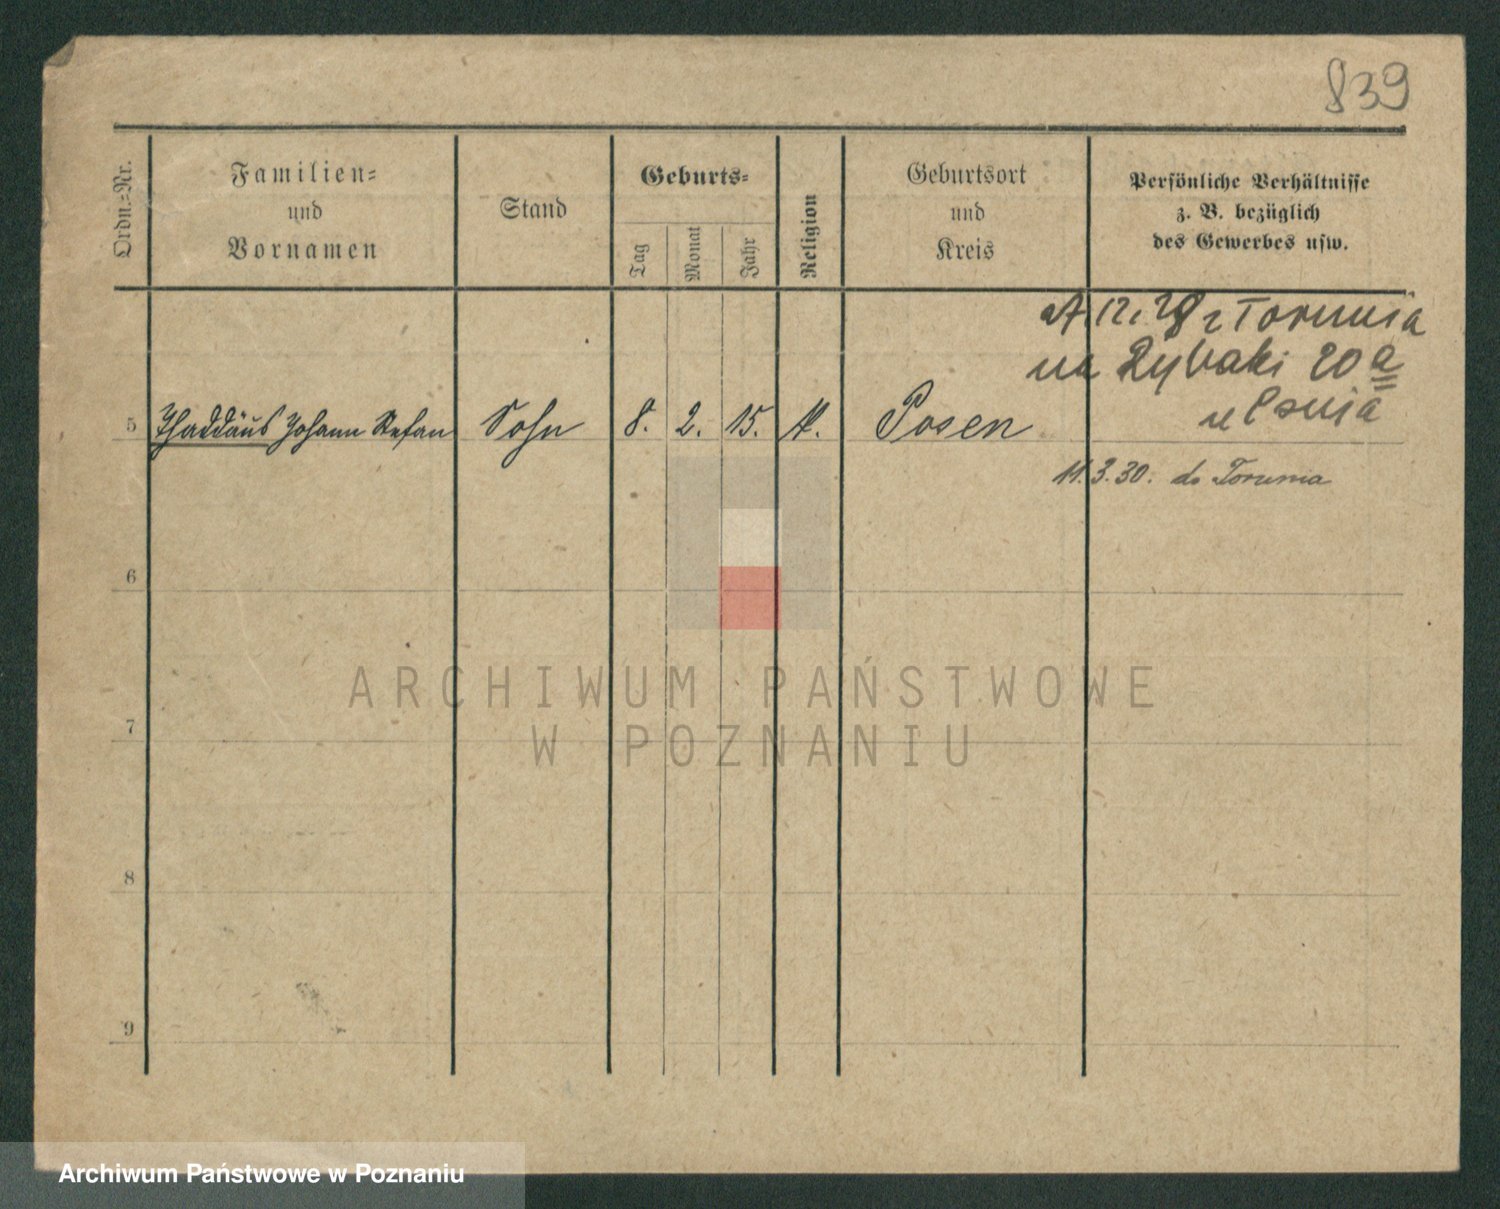 839
Ordn.-Nr.
Familien-
und
Vornamen
Stand
Geburts-
Tag
Monat
Jahr
Religion
Geburtsort
und
Kreis
Persönliche Verhältnisse
z. B. bezüglich
des Gewerbes usw.
12. 28 z Torunia
na Rybaki 20a
5 Thaddäus Johann Stefan Sohn 8. 2. 15. K. Posen
11.3.30. do Torunia
6
7
8
9
ARCHIWUM PAŃSTWOWE
W POZNANIU
Archiwum Państwowe w Poznaniu